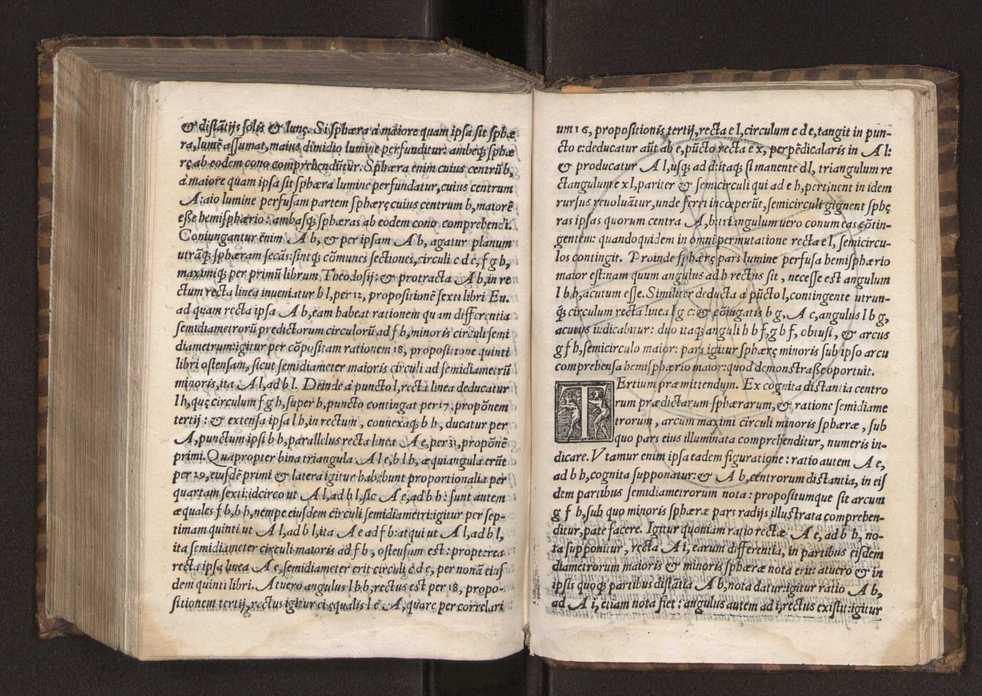 & distãtijs solis & lunę. Si sphæra à maiore quam ipsa sit sphæ
ra, lumẽ assumat, maius dimidio lumine perfunditur: ambęq; sphæ
rę ab eodem cono comprehendũtur. Sphæra enim cuius centrũ b,
à maiore quam ipsa sit sphæra lumine perfundatur, cuius centrum
A: aio lumine perfusam partem sphærę cuius centrum b, maiorẽ
esse hemisphærio: ambasq; sphæras ab eodem cono comprehendi.
Coniungantur enim A b, & per ipsam A b, agatur planum
utrãq; sphæram secãs: sintq; cõmunes sectiones, circuli c d e, f g h,
maximiq; per primũ librum Theodosij: & protracta A b, in re
ctum recta linea inueniatur b l, per 12, propositionẽ sexti libri Eu.
ad quam recta ipsa A b, eam habeat rationem quam differentia
semidiametrorũ predictorum circulorũ ad f b, minoris circuli semi
diametrum: igitur per cõpositam rationem 18, propositione quinti
libri ostensam, sicut semidiameter maioris circuli ad semidiametrũ
minoris, ita A l, ad b l. Deinde à puncto l, recta linea deducatur
l h, quę circulum f g h, super h, puncto contingat per 17. propõnem
tertij: & extensa ipsa l h, in rectum, connexaq; b h, ducatur per
A, punctum ipsi b h, parallelus recta linea A e, per 31, propõnẽ
primi. Quapropter bina triangula A l e, b l h, æquiangula erũt
per 29, eiusdẽ primi & latera igitur habebunt proportionalia per
quartam sexti: idcirco ut A l, ad b l, sic A e, ad b h: sunt autem
æquales f b, b h, nempe eiusdem circuli semidiametri: igitur per sep-
timam quinti ut A l, ad b l, ita A e ad f b: atqui ut A l, ad b l,
ita semidiameter circuli maioris ad f b, ostensum est: propterea
recta ipsa linea A e, semidiameter erit circuli c d e, per nonã eius
dem quinti libri. At uero angulus l h b, rectus est per 18, propo-
sitionem tertij, rectus igitur ei æqualis l e A, quare per correlari
um 16, propositionis tertij, recta e l, circulum c d e, tangit in pun-
cto e: deducatur aũt ab e, pũcto recta e x, perpẽdicalaris in A l:
& producatur A l, usq; ad d: itaq; si manente d l, triangulum re
ctangulum e x l, pariter & semicirculi qui ad e h, pertinent in idem
rursus reuoluãtur, unde ferri incœperũt, semicirculi gignent sphę
ras ipsas quorum centra A, b: triangulum uero conum eas cõtin-
gentem: quandoquidem in omni permutatione recta e l, semicircu-
los contingit. Proinde sphærę pars lumine perfusa hemisphærio
maior est: nam quum angulus ad h rectus sit, necesse est angulum
l b h, acutum esse. Similiter deducta à pũcto l, contingente utrun-
q; circulum recta linea l g c: & cõiugatis b g, A c, angulus l b g,
acutus iudicabitur: duo itaq; anguli h b f, g b f, obtusi, & arcus
g f h, semicirculo maior: pars igitur sphærę minoris sub ipso arcu
comprehensa hemisphærio maior: quod demonstrasse oportuit.
TErtium præmittendum. Ex cognita distantia centro
rum prædictarum sphærarum, & ratione semidiame
trorum, arcum maximi circuli minoris sphæræ, sub
quo pars eius illuminata comprehenditur, numeris in-
dicare. Vtamur enim ipsa eadem figuratione: ratio autem A e,
ad b h, cognita supponatur: & A b, centrorum distantia, in eis
dem partibus semidiametrorum nota: propositumque sit arcum
g f h, sub quo minoris sphæræ pars radijs illustrata comprehen-
ditur, pate facere. Igitur quoniam ratio rectæ A e, ad b h, no-
ta supponitur, recta A i, earum differentia, in partibus eisdem
diametrorum maioris & minoris sphæræ nota erit: at uero & in
ipsis quoq; partibus distatia A b, nota datur: igitur ratio A b,
ad A i, etiam nota fiet: angulus autem ad i, rectus existit: igitur